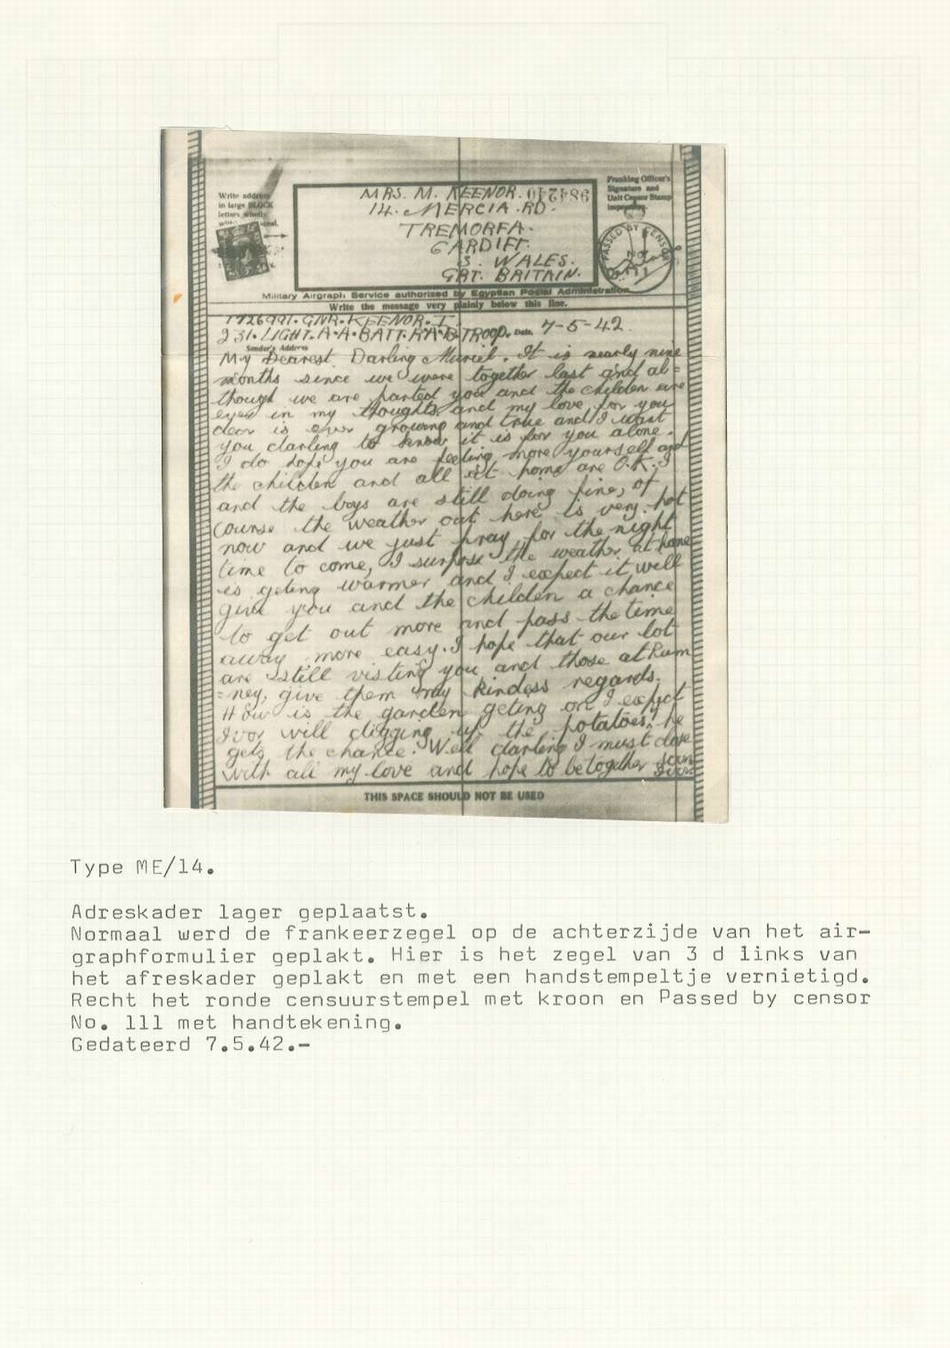 Write address
in large BLOCK
letters wholly
MRS. M. KEENOR.
984240
14. MERCIA. RD.
TREMORFA.
CARDIFF.
S. WALES.
GRT. BRITAIN.
Franking Officer's
Signature and
Unit Censor Stamp
PASSED BY CENSOR
Military Airgraph Service authorized by Egyptian Postal Administration
Write the message very plainly below this line.
1726991. GNR. KEENOR. I.
231. LIGHT. A.A. BATT. R.A. B. TROOP. Date. 7-5-42.
Sender's Address
My Dearest Darling Muriel. It is nearly nine
months since we were together last and al=
though we are parted you and the children are
ever in my thoughts and my love for you
dear is ever growing and true and I want
you darling to know it is for you alone.
I do hope you are feeling more yourself and
the children and all at home are O.K. I
and the boys are still doing fine, of
course the weather out here is very hot
now and we just pray for the night
time to come, I surpose the weather at home
is geting warmer and I expect it will
give you and the children a chance
to get out more and pass the time
away more easy. I hope that our lot
are still visting you and those at Rum
=ney, give them my kindess regards.
How is the garden geting on I expect
Ivor will digging up the potatoes, he
gets the chance. Well darling I must close
with all my love and hope to be together
THIS SPACE SHOULD NOT BE USED
Type ME/14.
Adreskader lager geplaatst.
Normaal werd de frankeerzegel op de achterzijde van het air-
graphformulier geplakt. Hier is het zegel van 3 d links van
het afreskader geplakt en met een handstempeltje vernietigd.
Recht het ronde censuurstempel met kroon en Passed by censor
No. 111 met handtekening.
Gedateerd 7.5.42.-